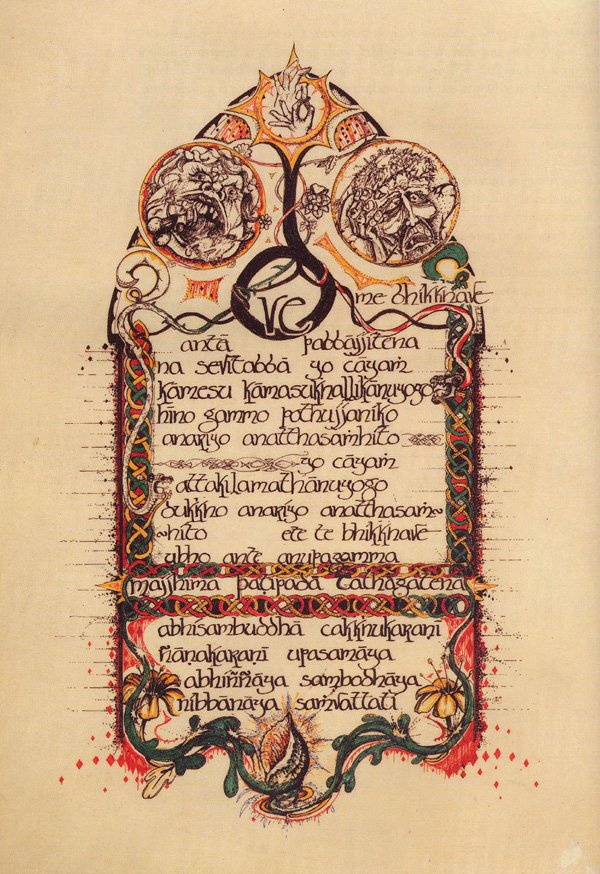 Dve me bhikkhave
antā pabbajjitena
na sevitabbā yo cāyaṁ
kāmesu kāmasukhallikānuyogo
hīno gammo pothujjaniko
anariyo anatthasaṁhito
yo cāyaṁ
attakilamathānuyogo
dukkho anariyo anatthasaṁ~
~hito ete te bhikkhave
ubho ante anupagamma
majjhimā paṭipadā tathāgatena
abhisambuddhā cakkhukaraṇī
ñāṇakaraṇī upasamāya
abhiññāya sambodhāya
nibbānāya saṁvattati